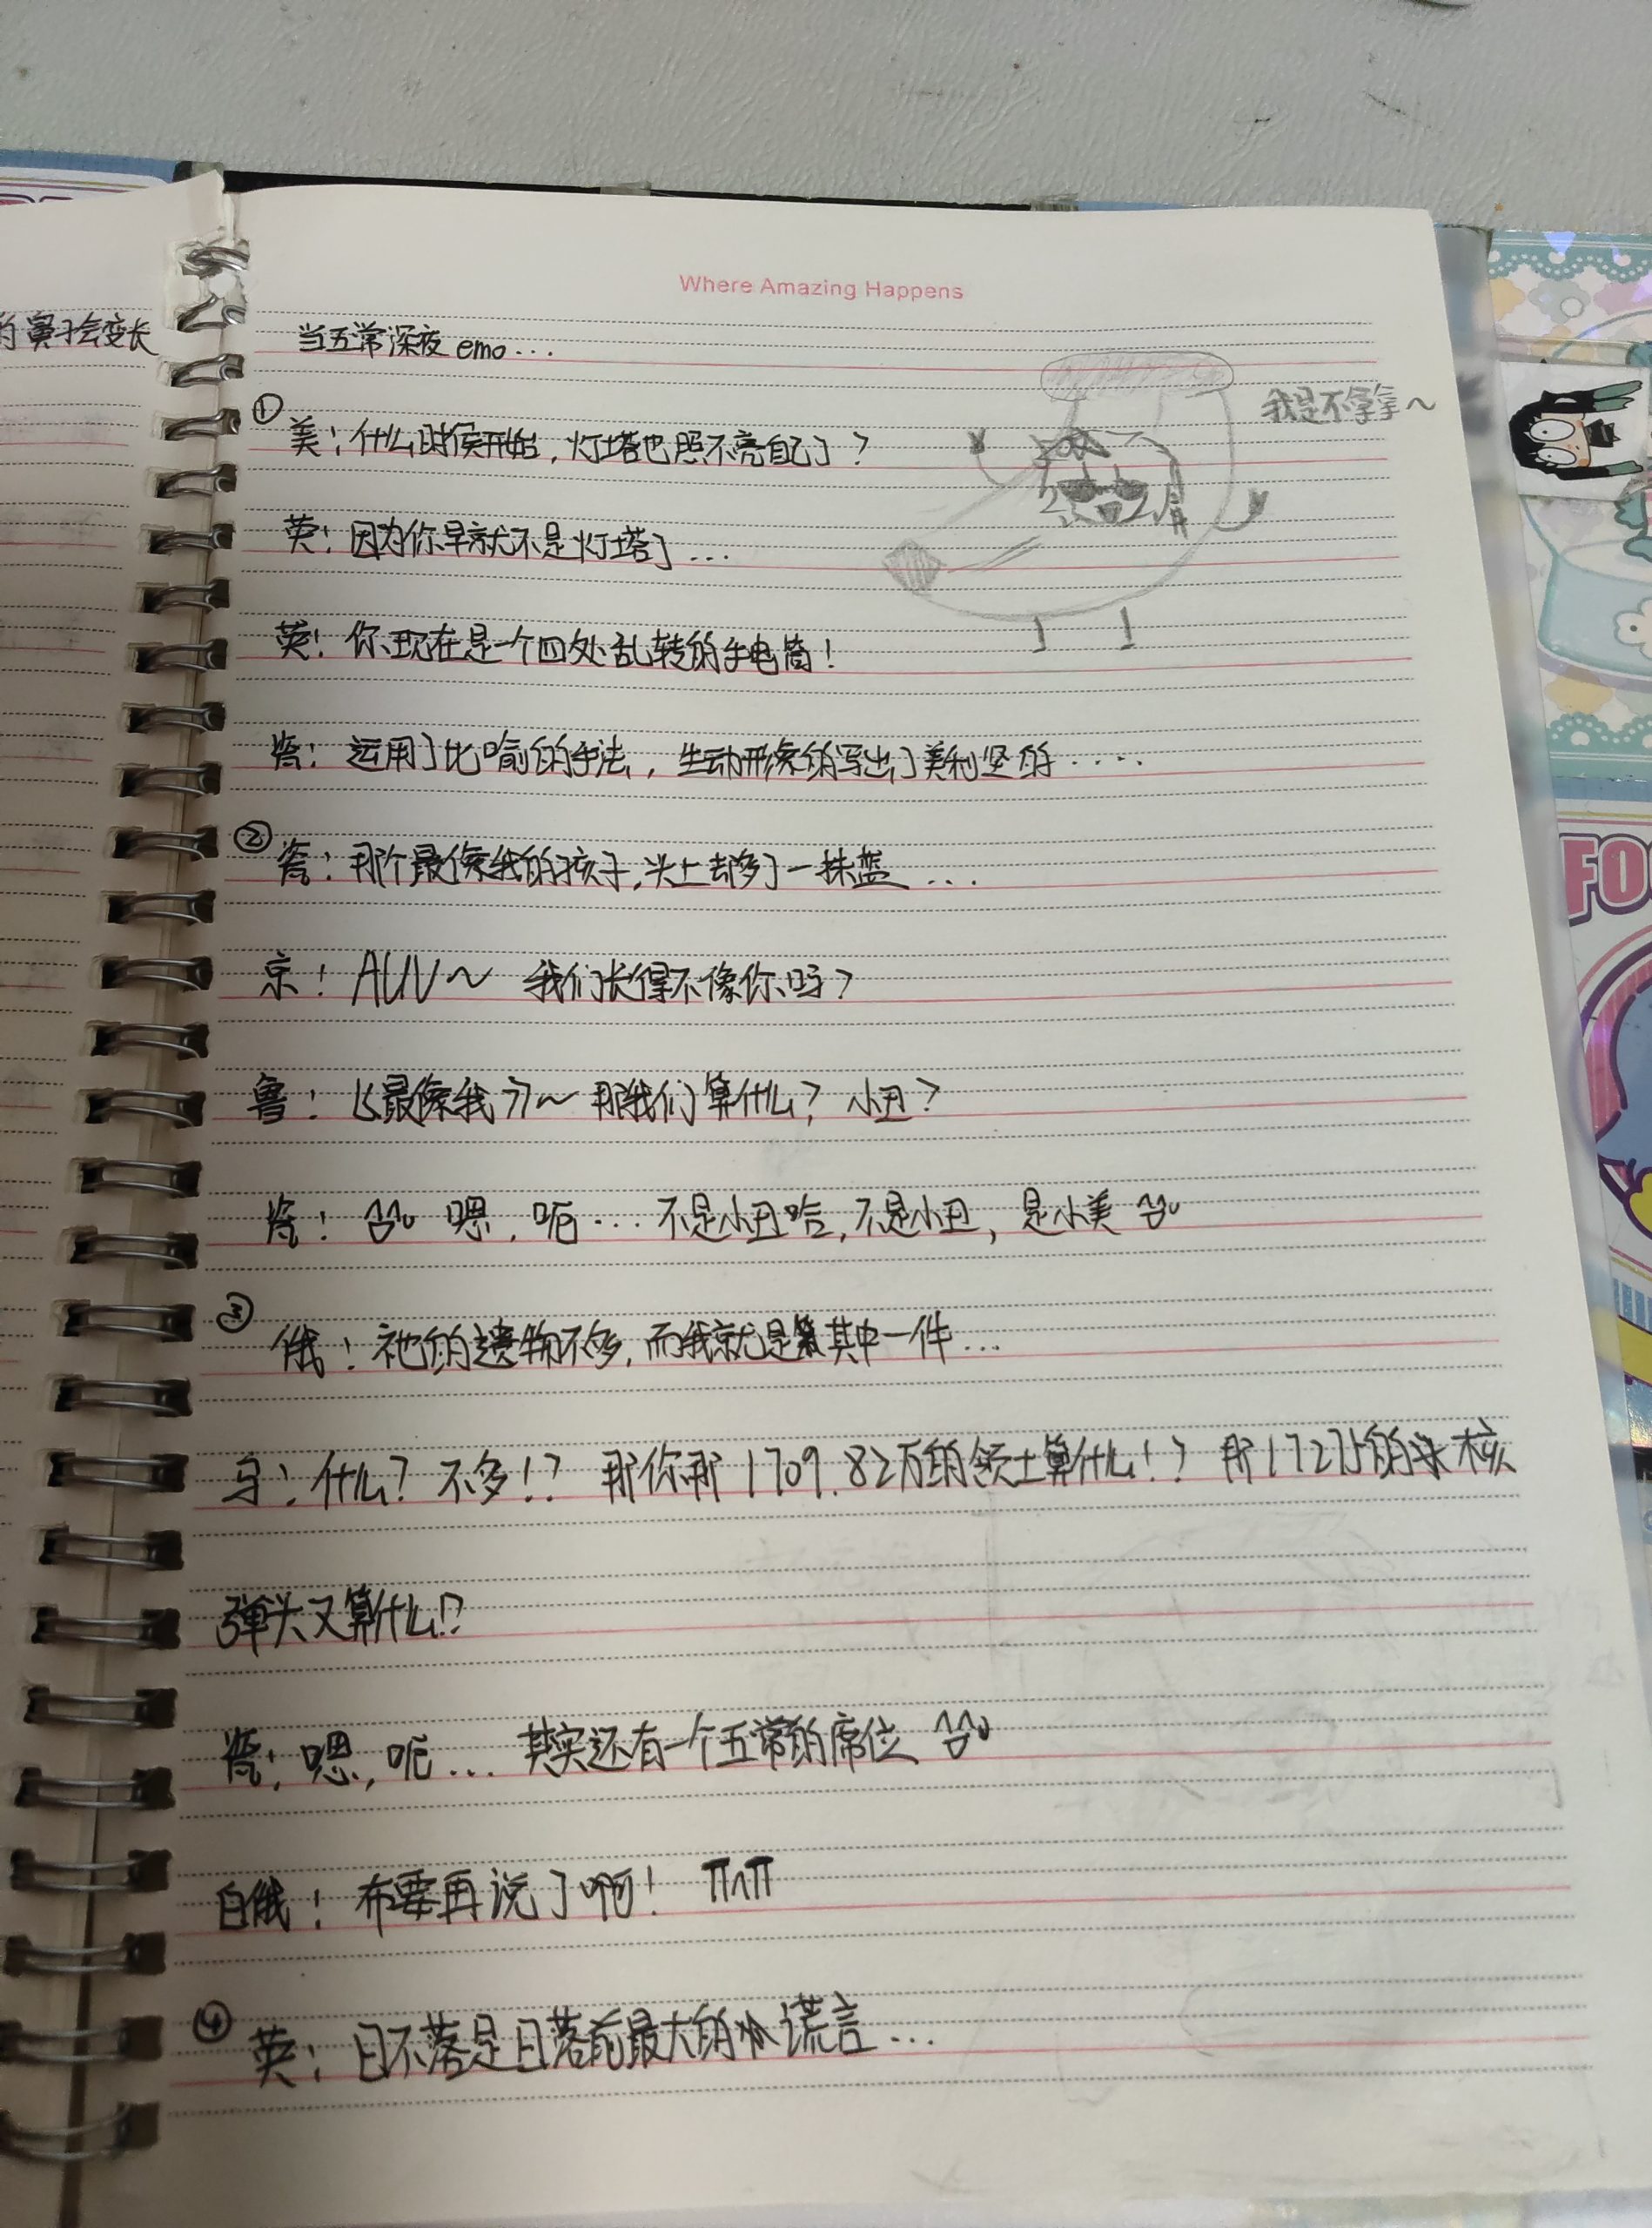 Where Amazing Happens
的鼻子会变长
当五常深夜emo...
我是不倒翁~
① 美：什么时候开始，灯塔也照不亮自己了？
英：因为你早就不是灯塔了...
英：你现在是一个四处乱转的手电筒！
瓷：运用了比喻的手法，生动形象的写出了美利坚的....
② 瓷：那个最像我的孩子，头上却多了一抹蓝...
京：AUV~ 我们长得不像你吗？
鲁：《最像我》~ 那我们算什么？小丑？
瓷：嗯，呃...不是小丑哈，不是小丑，是小美
③ 俄：祂的遗物不多，而我就是其中一件...
乌：什么？不多！？那你那1709.82万的领土算什么！？那1727的核
弹头又算什么！？
瓷：嗯，呃...其实还有一个五常的席位
白俄：布要再说了啊！ΠΛΠ
④ 英：日不落是日落前最大的谎言...
FO